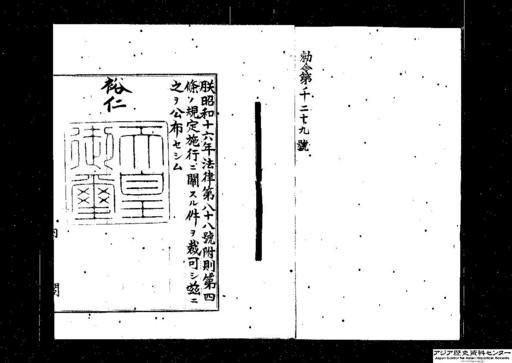 勅令第千二十九號
朕昭和十六年法律第八十八號附則第四
條ノ規定施行ニ關スル件ヲ裁可シ茲ニ
之ヲ公布セシム
裕仁
天皇
御璽
内閣
アジア歴史資料センター
Japan Center for Asian Historical Records